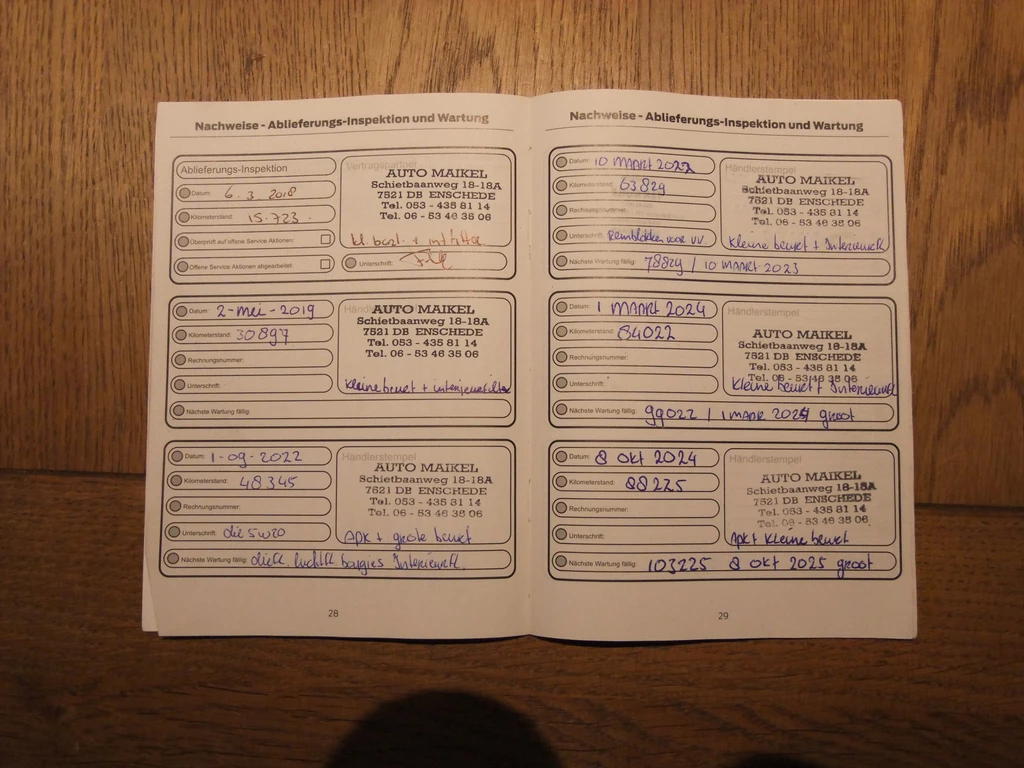 Nachweise - Ablieferungs-Inspektion und Wartung
Ablieferungs-Inspektion
Datum: 6.3.2018
Kilometerstand: 15.723.
Überprüft auf offene Service Aktionen:
Offene Service Aktionen abgearbeitet:
Vertragspartner
AUTO MAIKEL
Schietbaanweg 18-18A
7521 DB ENSCHEDE
Tel. 053 - 435 81 14
Tel. 06 - 53 46 35 06
kl. beurt + int filter
Unterschrift:
Datum: 2-mei-2019
Kilometerstand: 30897
Rechnungsnummer:
Unterschrift:
AUTO MAIKEL
Schietbaanweg 18-18A
7521 DB ENSCHEDE
Tel. 053 - 435 81 14
Tel. 06 - 53 46 35 06
kleine beurt + interieurfilter
Nächste Wartung fällig:
Datum: 1-09-2022
Kilometerstand: 48345
Rechnungsnummer:
Unterschrift: olie 5w20
Händlerstempel
AUTO MAIKEL
Schietbaanweg 18-18A
7521 DB ENSCHEDE
Tel. 053 - 435 81 14
Tel. 06 - 53 46 35 06
APK + grote beurt
Nächste Wartung fällig: oliefl. luchtfl. bougies Interieurfl.
28
Nachweise - Ablieferungs-Inspektion und Wartung
Datum: 10 MAART 2022
Kilometerstand: 63829
Rechnungsnummer:
Unterschrift: Remblokken voor VV.
Händlerstempel
AUTO MAIKEL
Schietbaanweg 18-18A
7521 DB ENSCHEDE
Tel. 053 - 435 81 14
Tel. 06 - 53 46 35 06
Kleine beurt + Interieurfl
Nächste Wartung fällig: 78829 / 10 MAART 2023
Datum: 1 MAART 2024
Kilometerstand: 84022
Rechnungsnummer:
Unterschrift:
Händlerstempel
AUTO MAIKEL
Schietbaanweg 18-18A
7521 DB ENSCHEDE
Tel. 053 - 435 81 14
Tel. 06 - 53 46 35 06
Kleine beurt + Interieurfl
Nächste Wartung fällig: 99022 / 1 MAAR 2025 groot
Datum: 8 okt 2024
Kilometerstand: 88225
Rechnungsnummer:
Unterschrift:
Händlerstempel
AUTO MAIKEL
Schietbaanweg 18-18A
7521 DB ENSCHEDE
Tel. 053 - 435 81 14
Tel. 06 - 53 46 35 06
Apk + Kleine beurt
Nächste Wartung fällig: 103225 8 okt 2025 groot
29